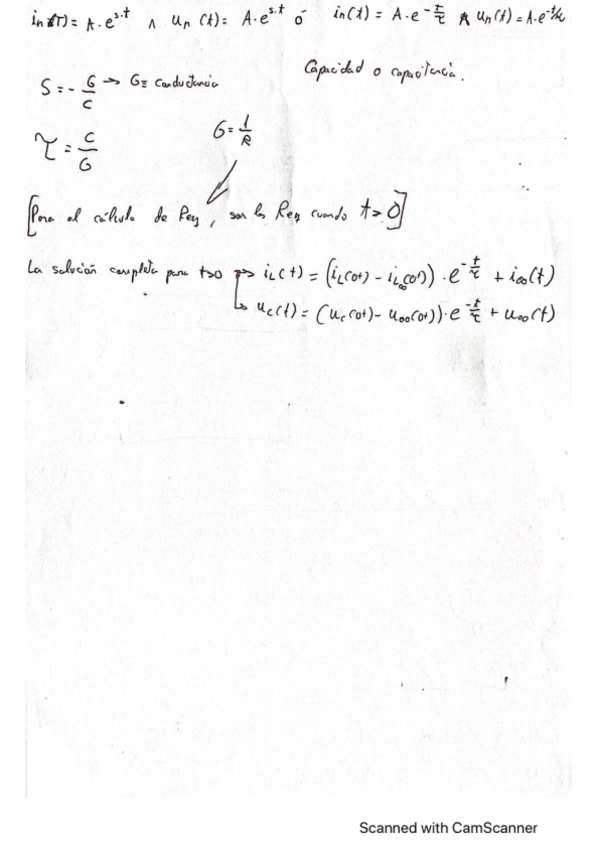 in(t) = A·e^{s.t} ∧ un(t) = A·e^{s.t} ó in(t) = A·e^{-t/τ} ∧ un(t) = A·e^{-t/τ}
Capacidad o capacitancia.
S = - G/C → G ≡ conductancia
τ = C/G
G = 1/R
[Para el cálculo de Req, son las Req cuando t>0]
La solución completa para t>0 ⇒ iL(t) = (iL(0+) - iL∞(0+))·e^{-t/τ} + i∞(t)
↳ uc(t) = (uc(0+) - u∞(0+))·e^{-t/τ} + u∞(t)
Scanned with CamScanner